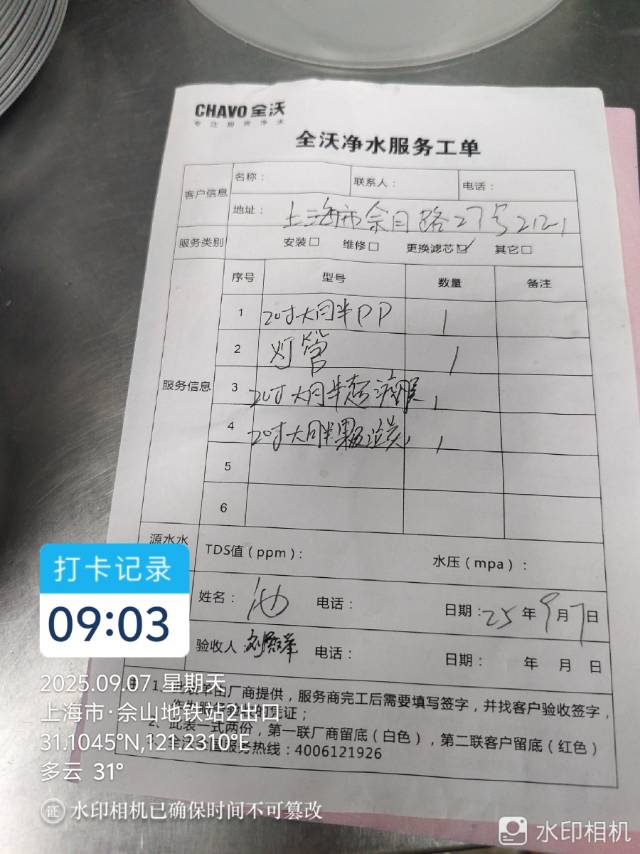 CHAVO 全沃
专注厨房净水
全沃净水服务工单
客户信息
名称：
联系人：
电话：
地址：上海市佘月路27号
服务类别
安装□ 维修□ 更换滤芯☑ 其它□
服务信息
序号 型号 数量 备注
1 20寸大同半PP 1
2 灯管 1
3 20寸大同半超滤膜 1
4 20寸大同半颗粒炭 1
5
6
源水水
TDS值（ppm）： 水压（mpa）：
姓名： 电话： 日期：25年9月7日
验收人 电话： 日期： 年 月 日
厂商提供，服务商完工后需要填写签字，并找客户验收签字，
凭证；
表一式两份，第一联厂商留底（白色），第二联客户留底（红色）
服务热线：4006121926
打卡记录
09:03
2025.09.07 星期天
上海市·佘山地铁站2出口
31.1045°N,121.2310°E
多云 31°
证 水印相机已确保时间不可篡改
水印相机